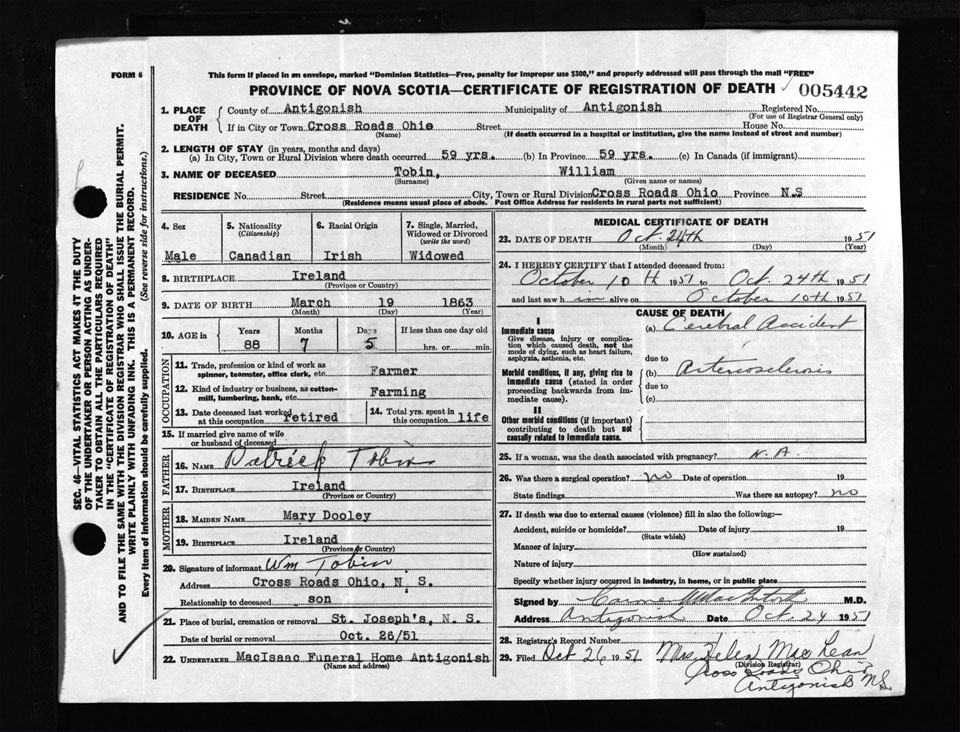 FORM 6
This form if placed in an envelope, marked "Dominion Statistics—Free, penalty for improper use $300," and properly addressed will pass through the mail "FREE"
PROVINCE OF NOVA SCOTIA—CERTIFICATE OF REGISTRATION OF DEATH 005442
1. PLACE OF DEATH
County of Antigonish Municipality of Antigonish Registered No.
(For use of Registrar General only)
If in City or Town Cross Roads Ohio Street House No.
(Name) (If death occurred in a hospital or institution, give the name instead of street and number)
2. LENGTH OF STAY (in years, months and days)
(a) In City, Town or Rural Division where death occurred 59 yrs. (b) In Province 59 yrs. (c) In Canada (if immigrant)
3. NAME OF DECEASED Tobin, William
(Surname) (Given name or names)
RESIDENCE No. Street City, Town or Rural Division Cross Roads Ohio Province N.S
(Residence means usual place of abode. Post Office Address for residents in rural parts not sufficient)
4. Sex 5. Nationality (Citizenship) 6. Racial Origin 7. Single, Married, Widowed or Divorced (write the word)
Male Canadian Irish Widowed
8. BIRTHPLACE Ireland
(Province or Country)
9. DATE OF BIRTH March 19 1863
(Month) (Day) (Year)
10. AGE in Years Months Days If less than one day old
88 7 5 hrs. or min.
OCCUPATION
11. Trade, profession or kind of work as spinner, teamster, office clerk, etc. Farmer
12. Kind of industry or business, as cotton-mill, lumbering, bank, etc. Farming
13. Date deceased last worked at this occupation retired 14. Total yrs. spent in this occupation life
15. If married give name of wife or husband of deceased
FATHER
16. NAME Patrick Tobin
17. BIRTHPLACE Ireland
(Province or Country)
MOTHER
18. MAIDEN NAME Mary Dooley
19. BIRTHPLACE Ireland
(Province or Country)
20. Signature of informant Wm Tobin
Address Cross Roads Ohio, N. S.
Relationship to deceased son
21. Place of burial, cremation or removal St. Joseph's, N. S.
Date of burial or removal Oct. 26/51
22. UNDERTAKER MacIsaac Funeral Home Antigonish
(Name and address)
MEDICAL CERTIFICATE OF DEATH
23. DATE OF DEATH Oct. 24th 1951
(Month) (Day) (Year)
24. I HEREBY CERTIFY that I attended deceased from:
October 10th 1951 to Oct. 24th 1951
and last saw him alive on October 10th 1951
CAUSE OF DEATH
I
Immediate cause
Give disease, injury or complication which caused death, not the mode of dying, such as heart failure, asphyxia, asthenia, etc.
(a) Cerebral Accident
due to
Morbid conditions, if any, giving rise to immediate cause (stated in order proceeding backwards from immediate cause).
(b) Arteriosclerosis
due to
(c)
II
Other morbid conditions (if important) contributing to death but not causally related to immediate cause.
25. If a woman, was the death associated with pregnancy? N.A.
26. Was there a surgical operation? no Date of operation 19
State findings Was there an autopsy? no
27. If death was due to external causes (violence) fill in also the following:—
Accident, suicide or homicide? Date of injury 19
(State which)
Manner of injury
(How sustained)
Nature of injury
Specify whether injury occurred in industry, in home, or in public place
Signed by M.D.
Address Antigonish Date Oct. 24 1951
28. Registrar's Record Number
29. Filed Oct 26 1951 Mrs. Helen MacLean
(Division Registrar)
Cross Roads Ohio
Antigonish N.S.
SEC. 46—VITAL STATISTICS ACT MAKES IT THE DUTY
OF THE UNDERTAKER OR PERSON ACTING AS UNDER-
TAKER TO OBTAIN ALL THE PARTICULARS REQUIRED
IN THE "CERTIFICATE OF REGISTRATION OF DEATH"
AND TO FILE THE SAME WITH THE DIVISION REGISTRAR WHO SHALL ISSUE THE BURIAL PERMIT.
WRITE PLAINLY WITH UNFADING INK. THIS IS A PERMANENT RECORD.
Every item of information should be carefully supplied. (See reverse side for instructions.)